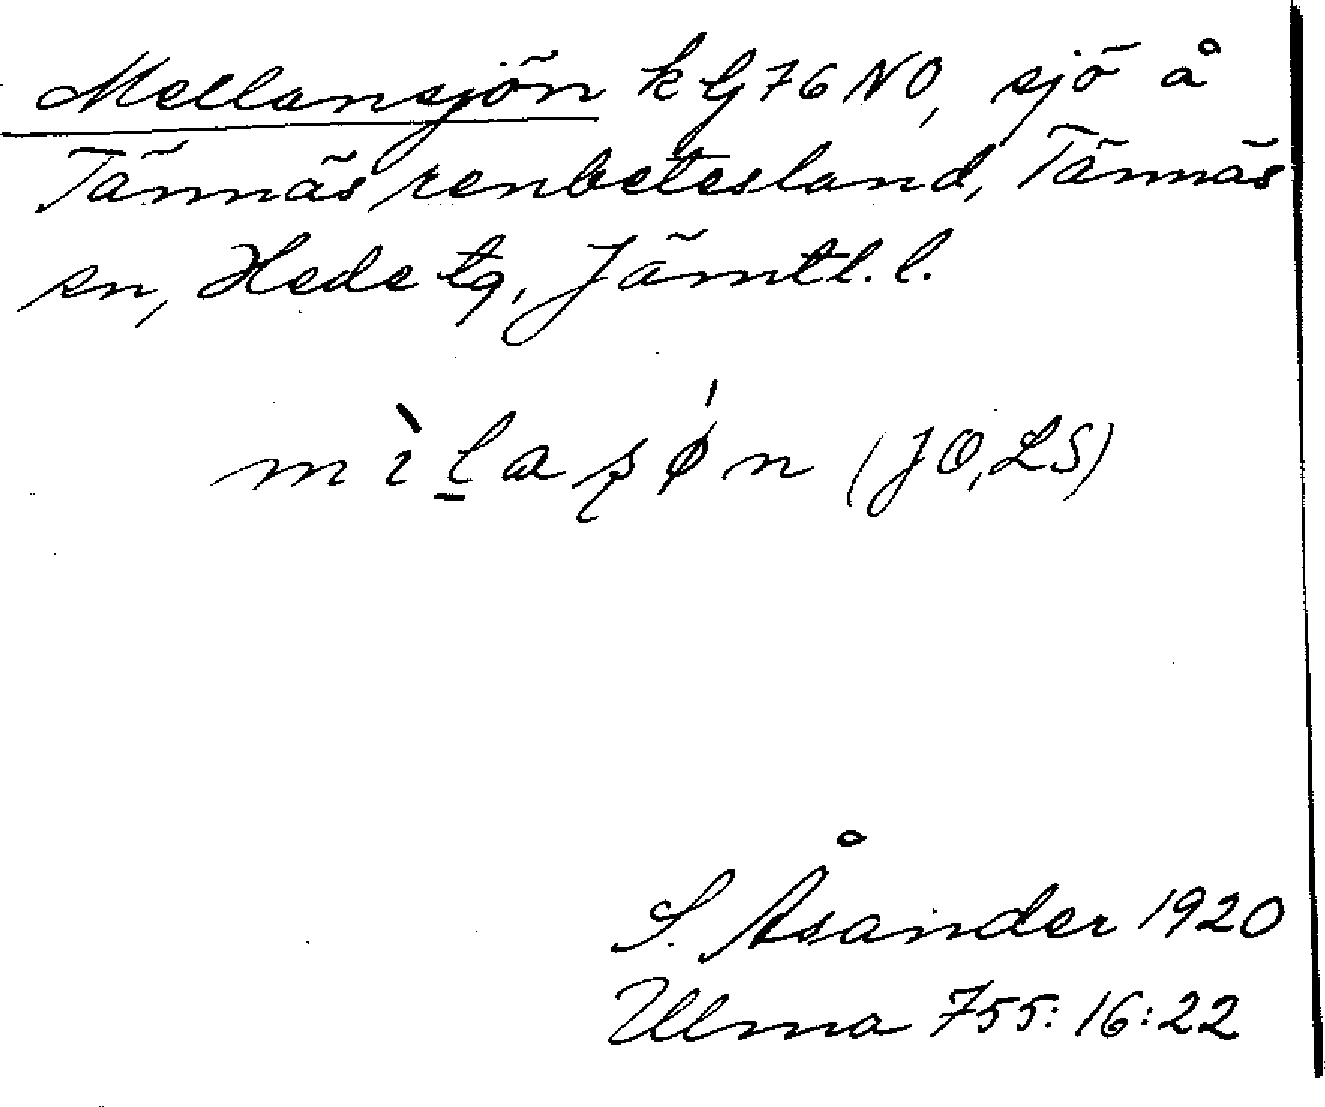 Mellansjön k bl 76 NO, sjö å
Tännäs renbetesland, Tännäs
sn, Hede tg, Jämtl. l.
mìlaʂǿn (JO, LS)
S. Åsander 1920
Ulma 755:16:22